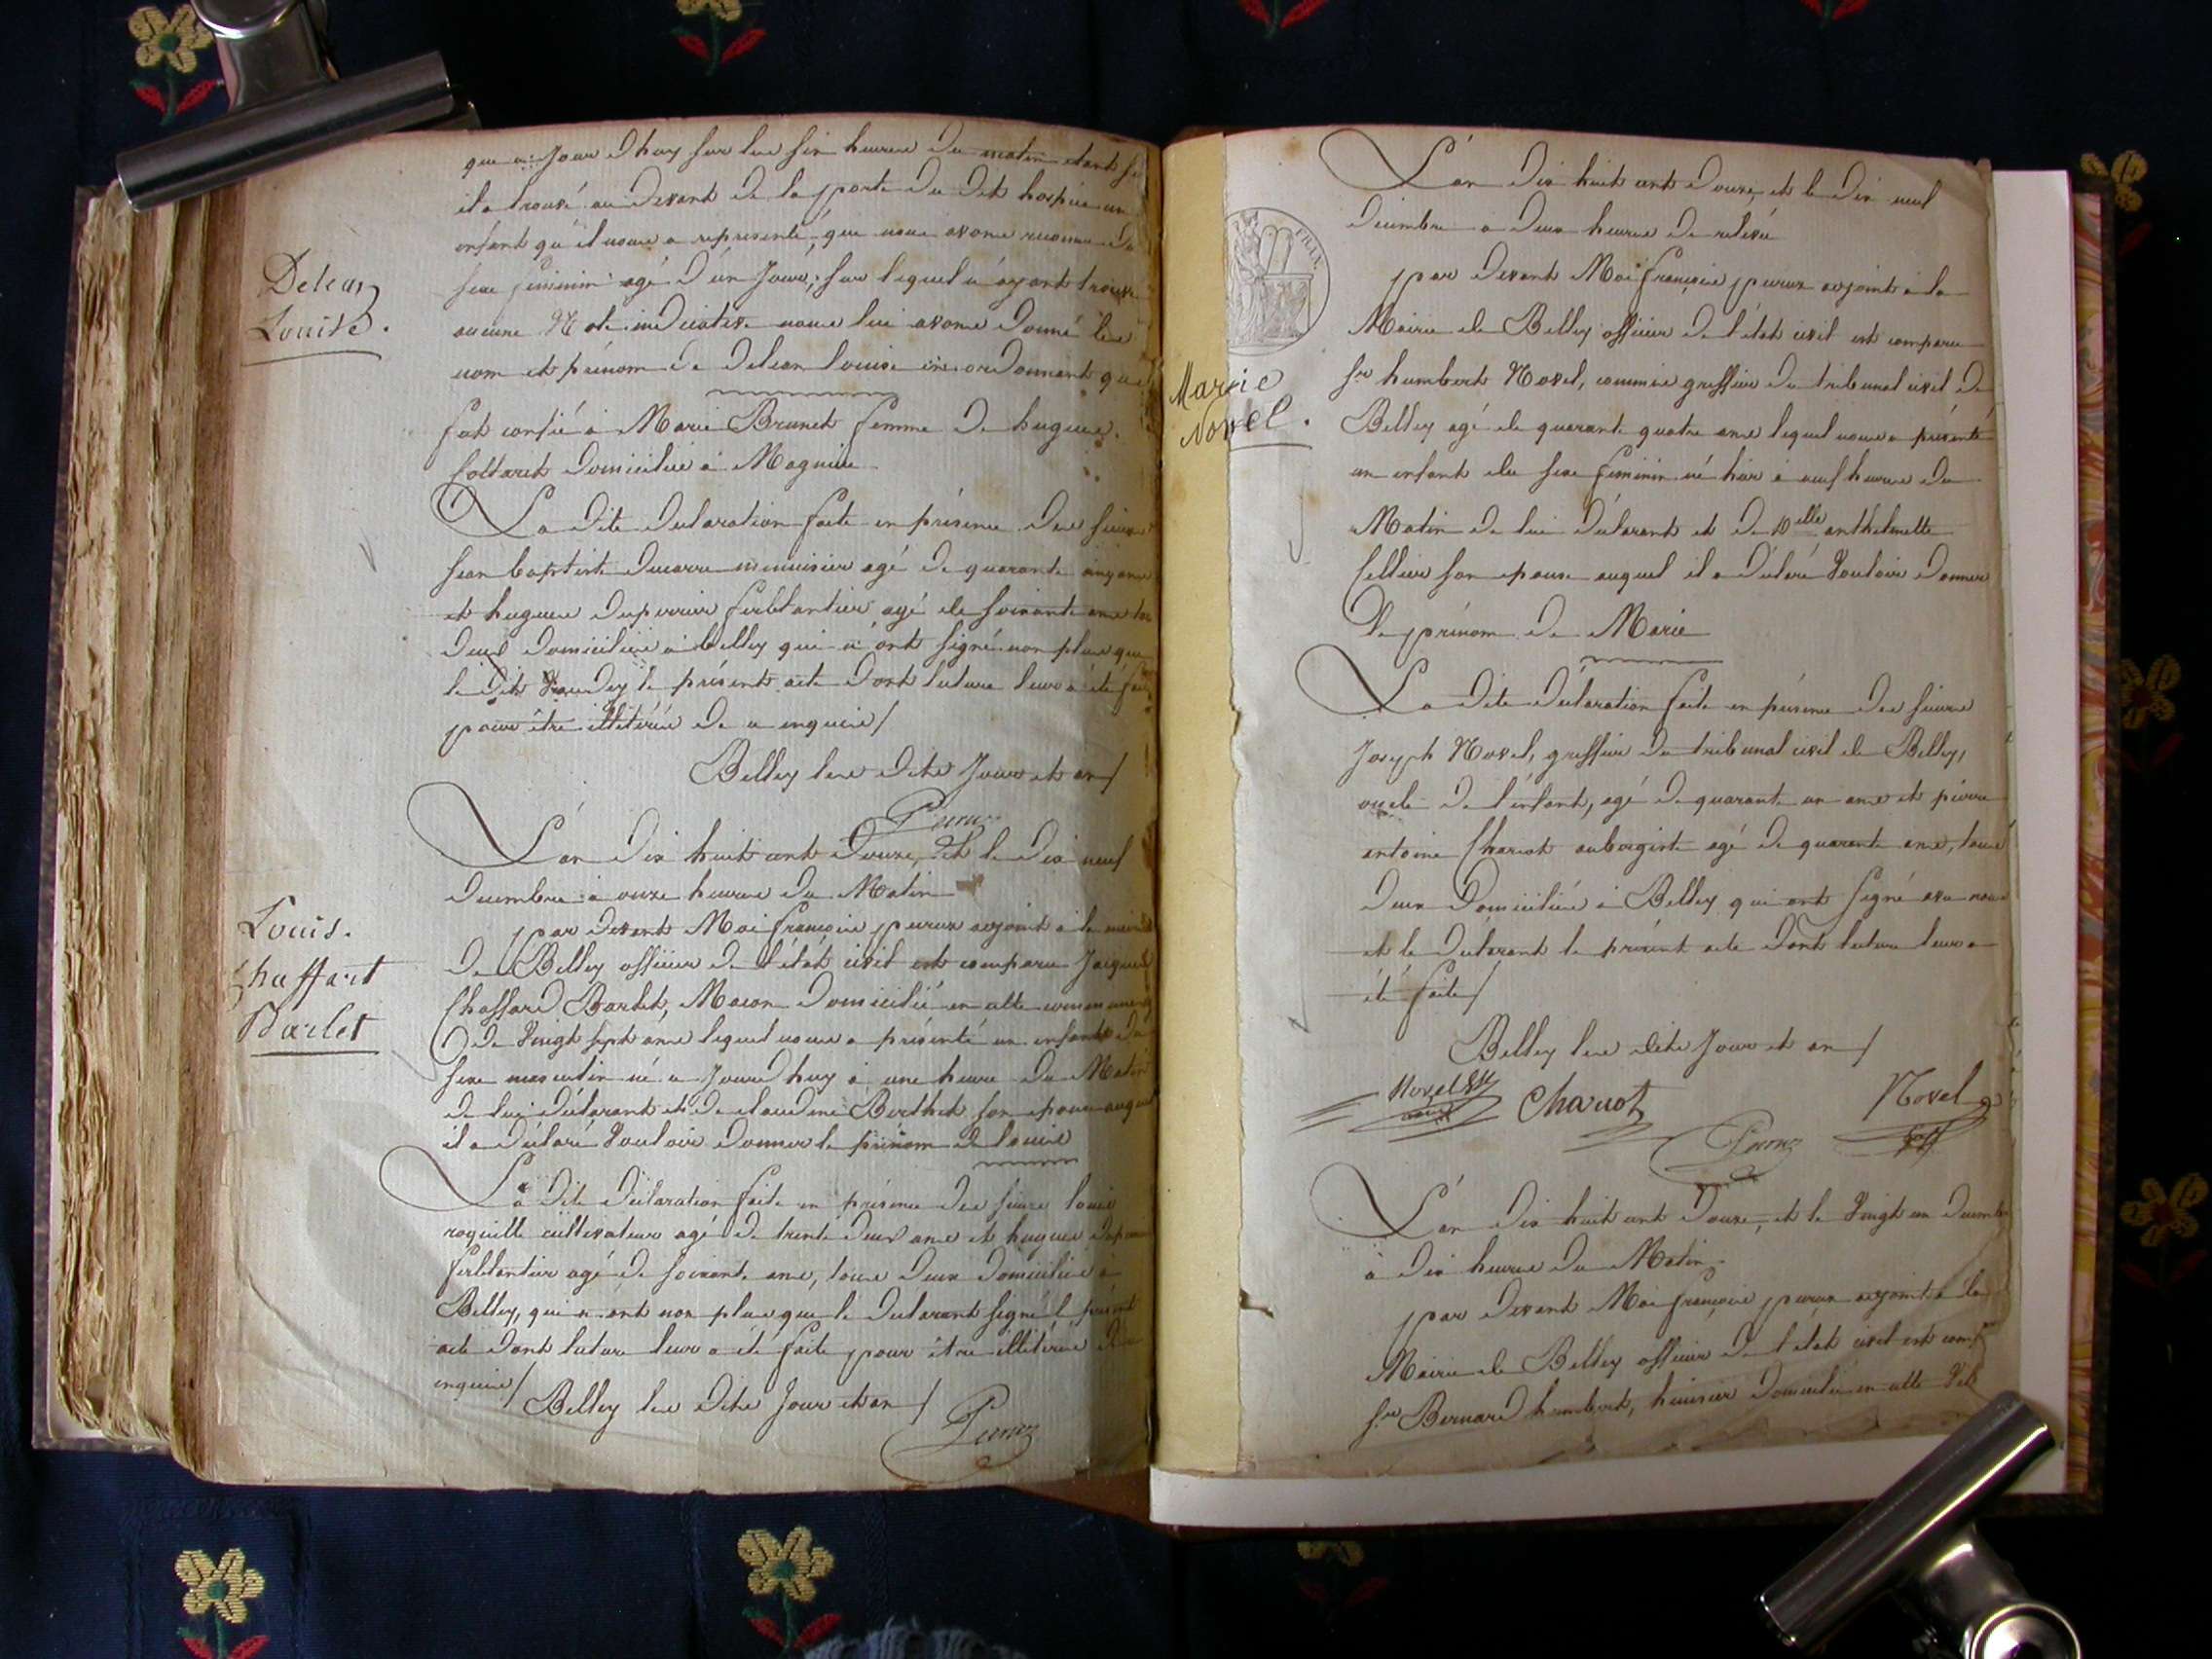 que ce Jour d'huy sur les six heures du matin etant
il a trouvé au devant de la porte du dit hospice un
enfant qu'il nous a représenté, que nous avons reconnu du
Delean
Louise.
sexe feminin agé d'un Jour, sur lequel n'ayant trouvé
aucune Note indicative nous lui avons donné les
nom et prénom de Delean Louise en ordonnant que
fut confié à Marie Brunet femme de hugues
Collaret domiciliée à Magnieu
La dite declaration faite en présence des sieurs
Jean baptiste ducarre menuisier agé de quarante cinq ans
et hugues duperrier ferblantier agé de soixante ans tous
deux domiciliés à Belley qui n'ont signé non plus que
le dit le présent acte dont lecture leur a été faite
pour être illitérés de ce enquis/
Belley les dits Jour et an/
Peruz
L'an dix huit cent douze, et le dix neuf
decembre à onze heures du Matin
Louis.
Chaffart
Barlet
par devant Moi françois peruz adjoint à la mairie
de Belley officier de l'état civil est comparu Jacques
Chaffard Barlet, Macon domicilié en cette commune
de Vingt sept ans lequel nous a présenté un enfant du
sexe masculin né ce Jourd'huy à une heure du Matin
de lui déclarant et de claudine Berthet son epouse auquel
il a déclaré Vouloir donner le prénom de Louis
La dite déclaration faite en présence des sieurs louis
roquille cultivateur agé de trente deux ans et hugues duperrier
ferblantier agé de soixante ans, tous deux domiciliés à
Belley, qui n'ont non plus que le declarant signé le présent
acte dont lecture leur a été faite pour être illitérés de ce
enquis/
Belley les dits Jour et an/
Peruz
L'an dix huit cent douze, et le dix neuf
decembre à deux heures de relevée
par devant Moi françois peruz adjoint à la
Mairie de Belley officier de l'état civil est comparu
Marie
Novel.
Sr humbert Novel, commis greffier du tribunal civil de
Belley agé de quarante quatre ans lequel nous a présenté
un enfant du sexe feminin né hier à neuf heures du
Matin de lui déclarant et de delle anthelmette
Cellier son epouse auquel il a déclaré Vouloir donner
Le prénom de Marie
La dite déclaration faite en présence des sieurs
Joseph Novel, greffier du tribunal civil de Belley,
oncle de l'enfant, agé de quarante un ans et pierre
antoine Charcot aubergiste agé de quarante ans, tous
deux Domiciliés à Belley qui ont signé avec nous
et le déclarant le présent acte dont lecture leur a
été faite/
Belley les dits Jour et an/
Novel
Charcot
Novel
Peruz
L'an dix huit cent douze, et le Vingt un decembre
à dix heures du Matin
par devant Moi françois peruz adjoint à la
Mairie de Belley officier de l'état civil est comp
Sr Bernard humbert, huissier domicilié en cette Ville